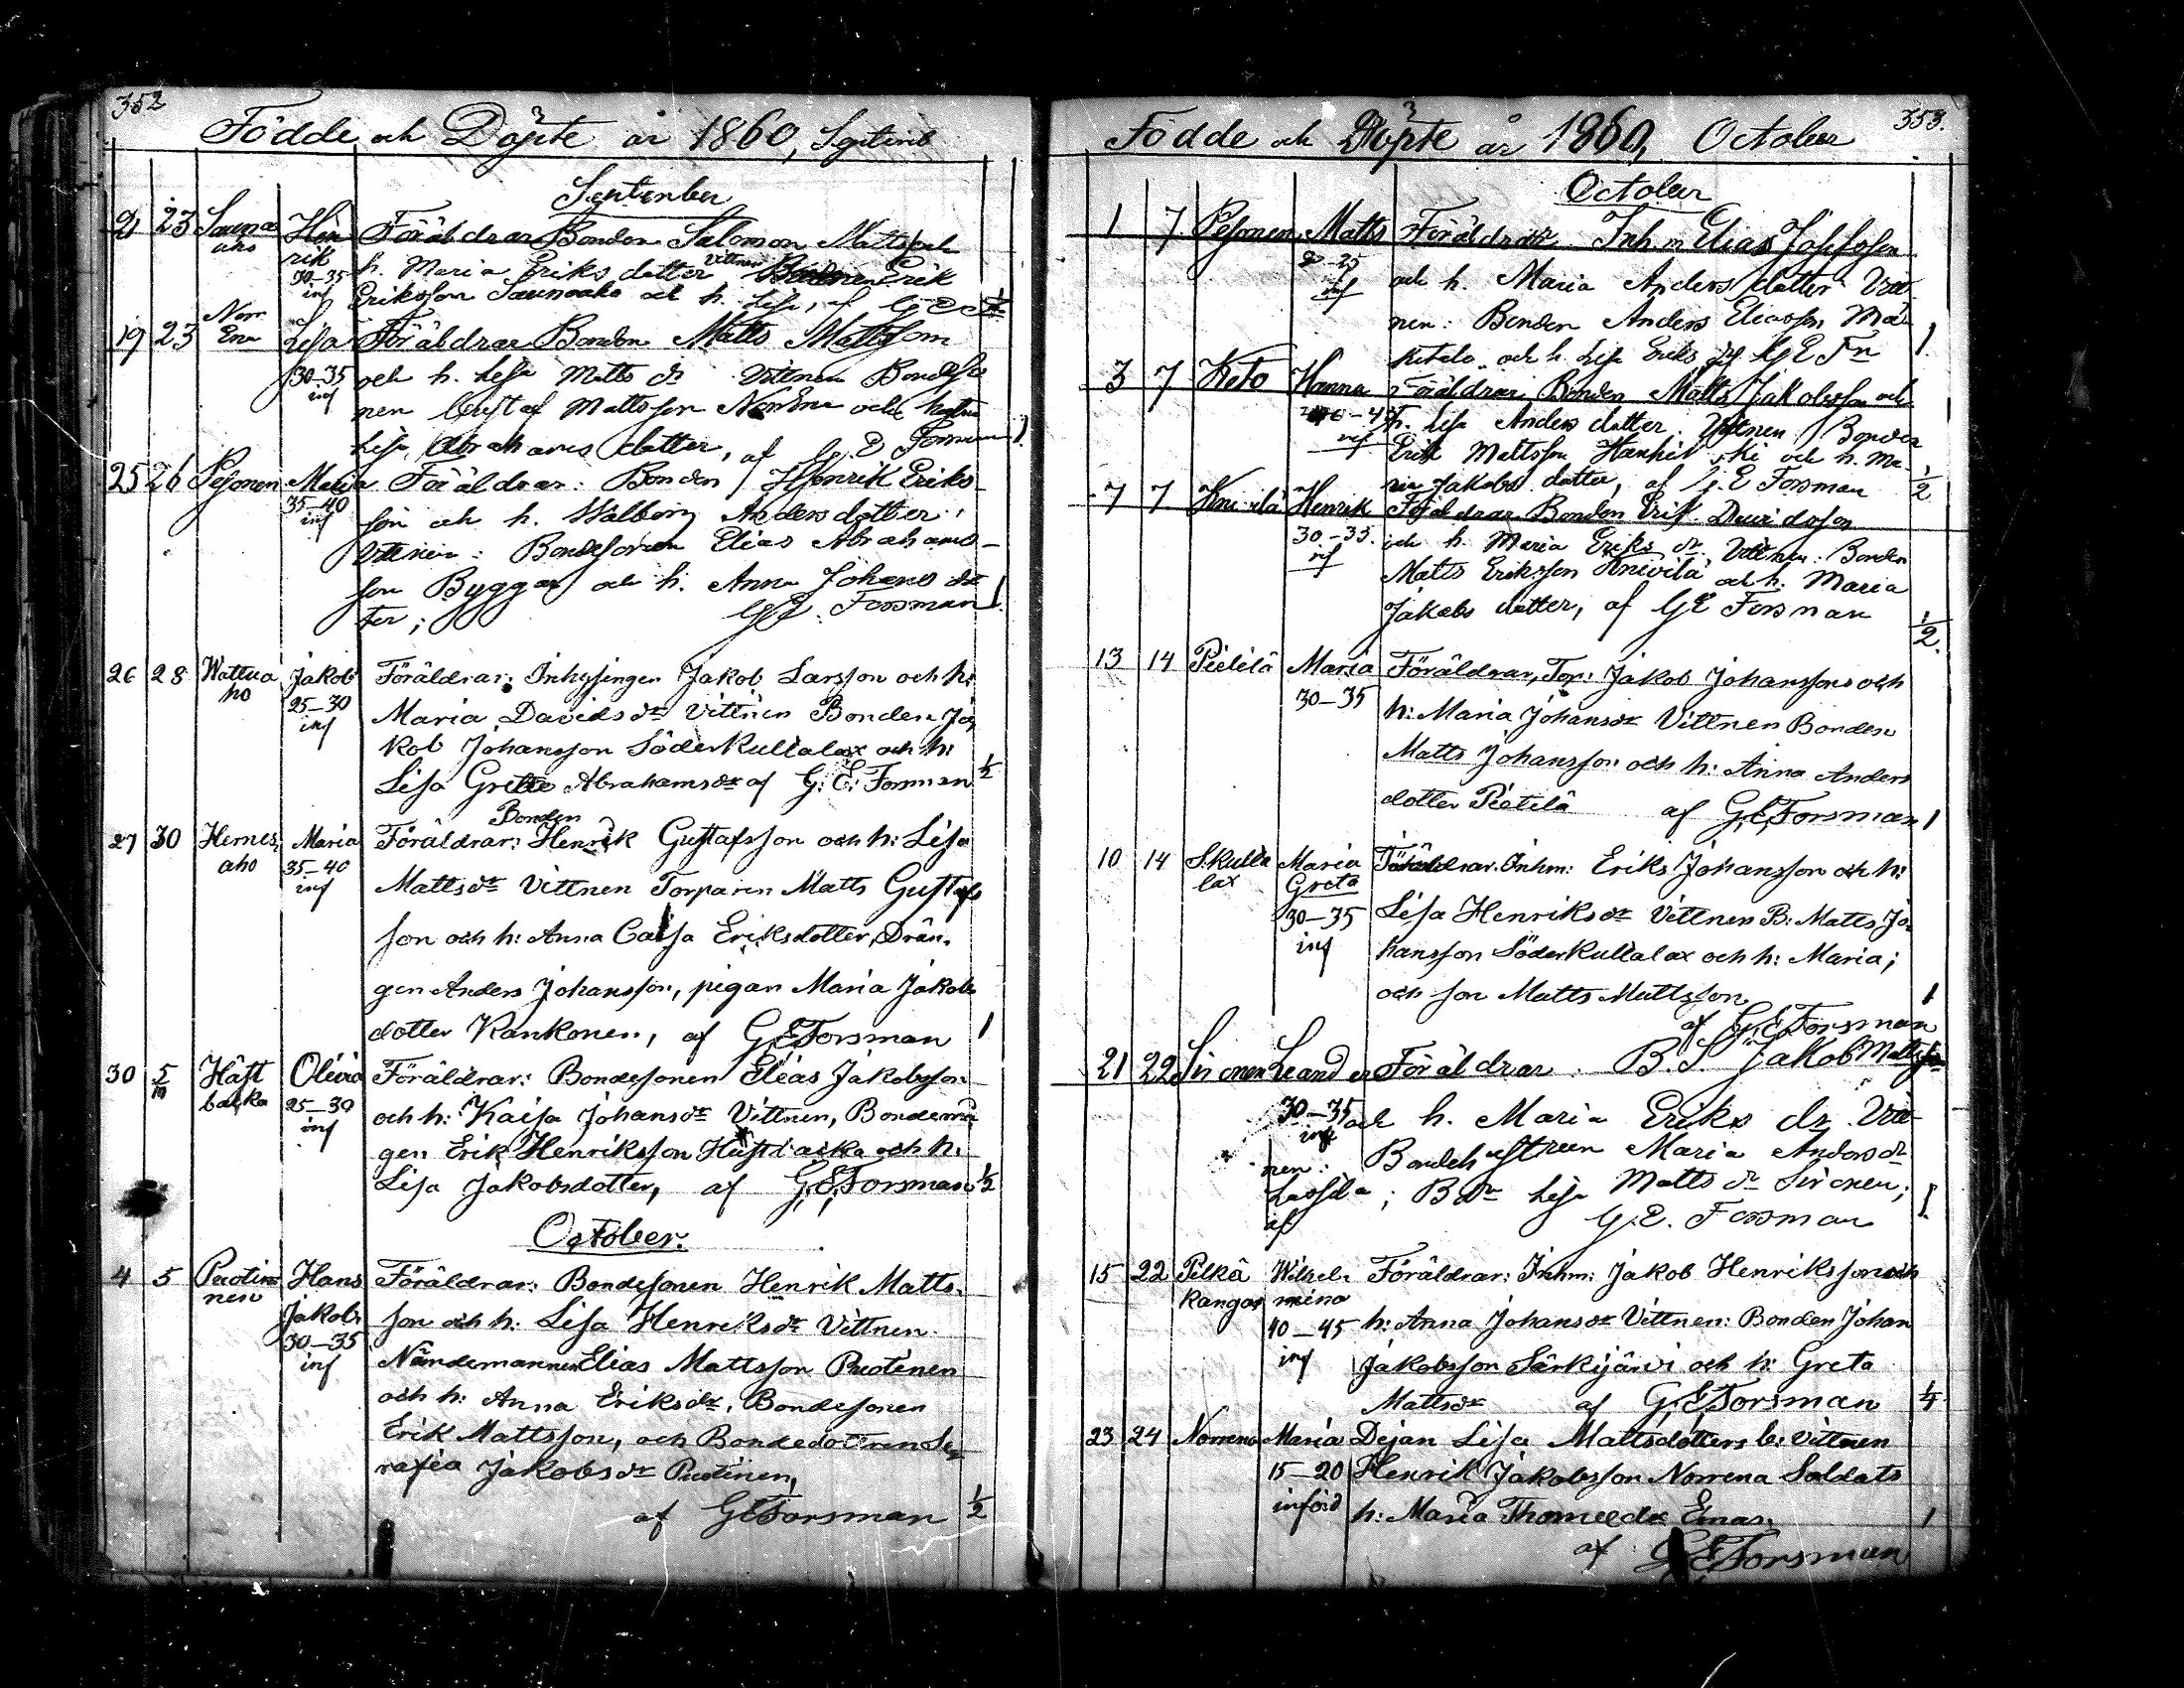 352
Födde och Döpte år 1860, Septemb
September
21 23 Sauna Hen Föräldrar Bonden Salomon Mattsson och
aho rik h. Maria Eriks dotter Vittnen Erik
30-35 Eriksson Saunaaho och h. Lisa, af
inf
19 23 Norr Lisa Föräldrar Bonden Matts Mattsson
Ena 30-35 och h. Lisa Matts dr Vittnen Bondeso
inf nen Gustaf Mattsson Norrena och hustru
Lisa Abrahams dotter, af G. E Forsman 1
25 26 Pesonen Maria Föräldrar: Bonden Henrik Eriks-
35-40 son och h. Walborg Andersdotter,
inf Vittnen: Bondesonen Elias Abrahams-
son Byggar och h. Anna Johans dot
ter; GE. Forsman 1.
26 28 Wattua Jakob Föräldrar: Inhysingen Jakob Larsson och h:
ho 25-30 Maria Davids dr Vittnen Bonden Ja,
inf kob Johansson Söderkullalax och h:
Lisa Greta Abrahamsdr af G: E: Forsman ½
Bonden
27 30 Hernes, Maria Föräldrar: Henrik Gustafsson och h: Lisa
aho 35-40 Mattsdr Vittnen Torparen Matts Gustafs
inf son och h: Anna Caisa Eriksdotter, Drän,
gen Anders Johansson, pigan Maria Jakobs
dotter Kankonen, af GEForsman 1
30 5/10 Häst Olivia Föräldrar: Bondesonen Elias Jakobsson
backa 25-30 och h: Kaisa Johansdr Vittnen, Bondemå
inf gen Erik Henriksson Hästbacka och h:
Lisa Jakobsdotter, af G.E.Forsman ½
October:
4 5 Puoti Hans Föräldrar: Bondesonen Henrik Matts,
nen Jakob, son och h: Lisa Henriksdr Vittnen
30-35 Nämdemannen Elias Mattsson Puotinen
inf och h: Anna Eriksdr, Bondesonen
Erik Mattsson, och Bondedottren Se,
rafia Jakobsdr Puotinen,
af GEForsman ½
353.
Födde och Döpte år 1860, October
October
1 7 Pesonen Matts Föräldrar Inh. Elias Josefsson
20-25 och h. Maria Anders dotter Vitt
inf nen: Bonden Anders Eliasson Mä
kitalo och h. Lisa Eriks dr af GE Fn 1.
3 7 Keto Hanna Föräldrar Bonden Matts Jakobsson och
inf h. Lisa Anders dotter. Vittnen Bonden
Erik Mattsson Hanhikoski och h. Ma-
ria Jakobs dotter, af G. E Forsman ½
7 7 Knivilä Henrik Föräldrar Bonden Erik Davidsson
30-35. och h. Maria Eriks dr. Vittnen: Bonden
inf Matts Eriksson Knivilä och h. Maria
Jakobs dotter, af GE Forsman ½.
13 14 Pietilä Maria Föräldrar, Tor: Jakob Johansson och
30-35 h: Maria Johansdr Vittnen Bonden
Matts Johansson och h: Anna Anders
dotter Pietilä af G.E.Forsman 1
10 14 S.kulla Maria Föräldrar. Inhm: Eriks Johansson och h:
lax Greta Lisa Henriksdr Vittnen B: Matts Jo,
30-35 hansson Söderkullalax och h: Maria;
inf och son Matts Mattsson 1
af G.E.Forsman
21 22 Sironen Leander Föräldrar. B. S. Jakob Mattsson
30-35 och h. Maria Eriks dr. Vitt
inf nen: Bondehustrun Maria Anders dr
Lassila; B dr Lisa Matts dr Sironen; 1
af G.E. Forsman
15 22 Pilkä Wilhel, Föräldrar: Inhm: Jakob Henriksson och
kangas mina h: Anna Johansdr Vittnen: Bonden Johan
40-45 Jakobsson Särkijärvi och h: Greta
inf Mattsdr af G.EForsman ¼
23 24 Norrena Maria Dejan Lisa Mattsdotters b: Vittnen
15-20 Henrik Jakobsson Norrena Soldats
införd h: Maria Thomasdr Enas. 1
af GEForsman